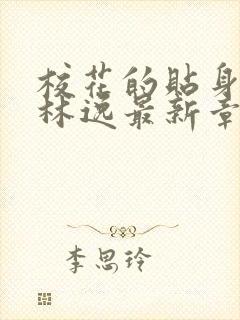 校花的貼身
林逸最新章
李思玲